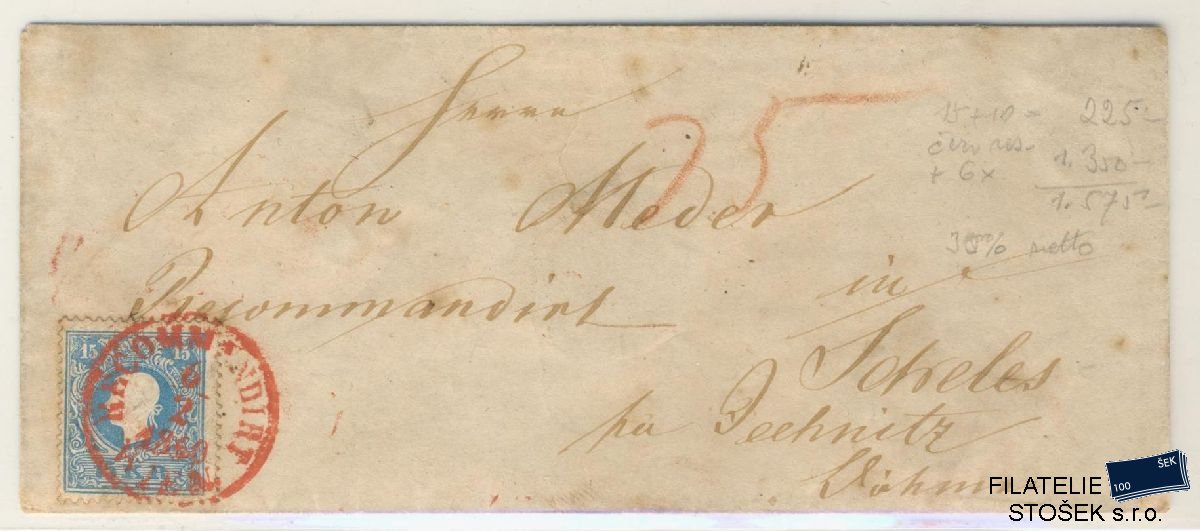 Herrn
25
Anton Meder
Recommandirt in
Scheles
per Jechnitz
Böhmen
15 + 10 = 225-
červ res. 1.350-
+ 6x 1.575-
35% netto
15 15
RECOMMANDIRT
WIEN
FILATELIE
STOŠEK s.r.o.
100 ŠEK